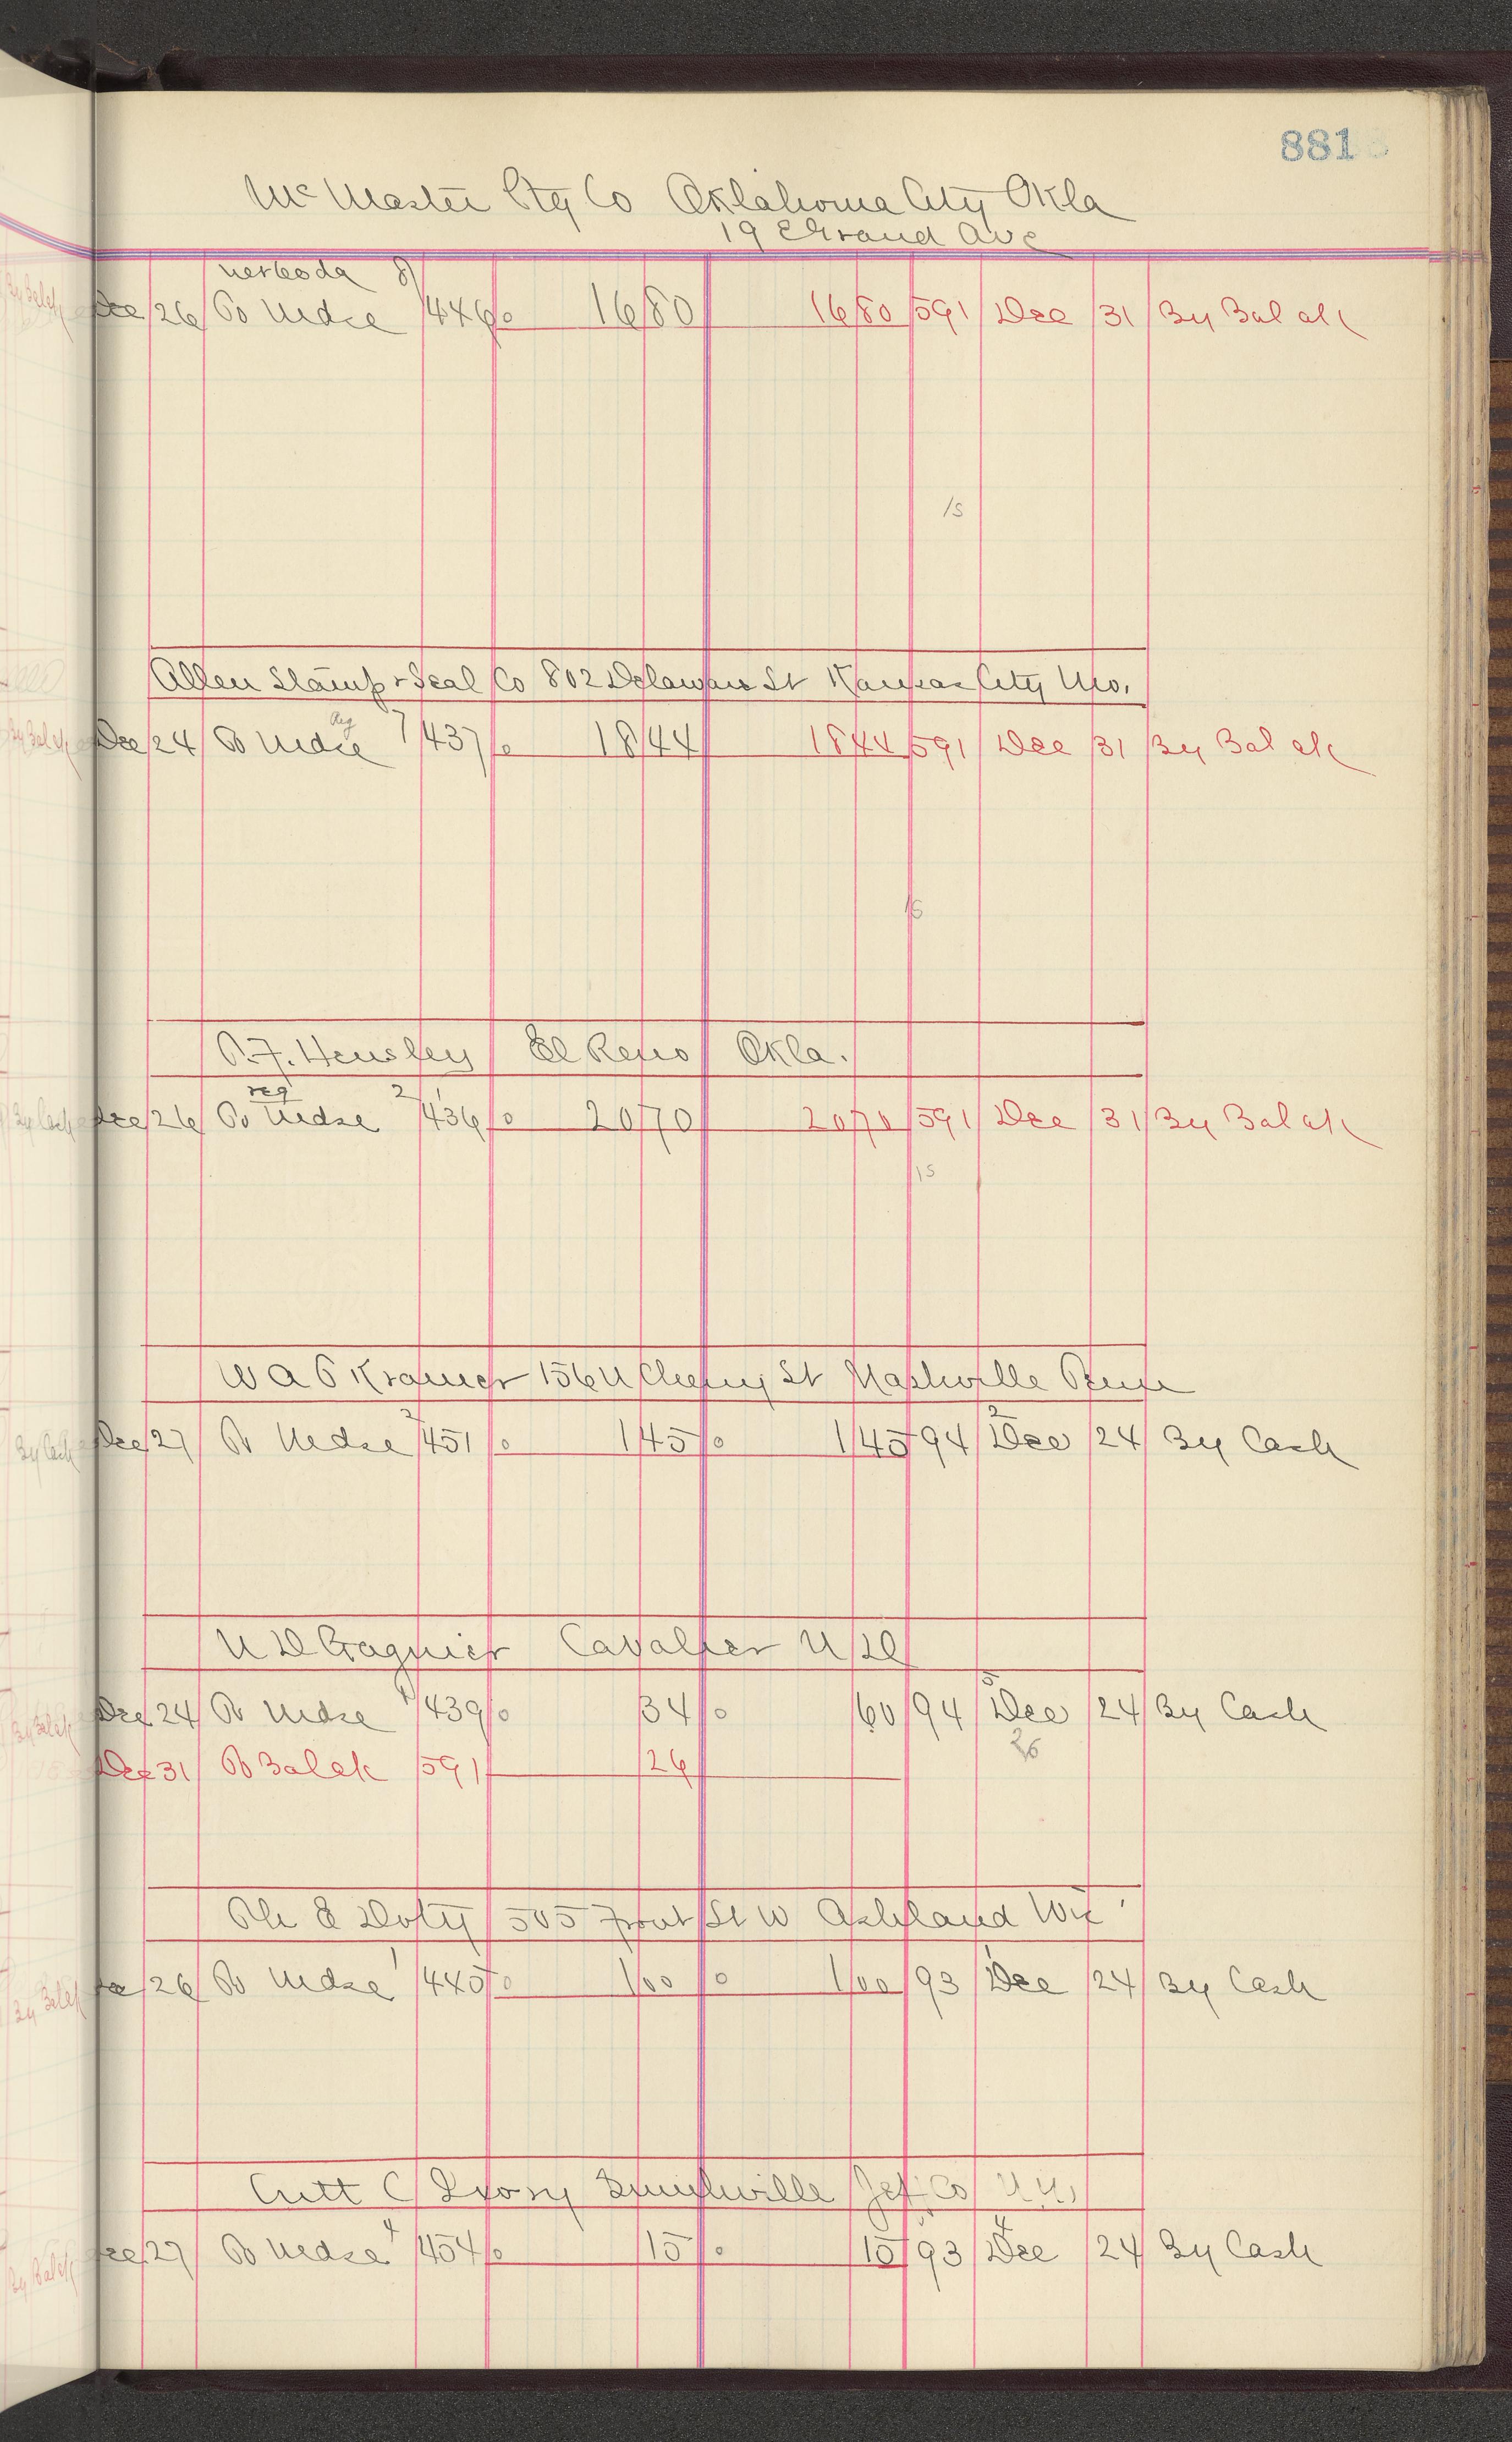 881
McMaster Ptg Co Oklahoma City Okla
19 E Grand Ave
8
Dec 26 To Mdse 446 16 80 16 80 591 Dec 31 By Bal a/c
15
Allen Stamp & Seal Co 802 Delaware St Kansas City Mo.
Reg 7
Dec 24 To Mdse 437 18 44 18 44 591 Dec 31 By Bal a/c
15
P.F. Hensley El Reno Okla.
reg 2
Dec 26 To Mdse 436 20 70 20 70 591 Dec 31 By Bal a/c
15
W A G Kramer 156 N Cherry St Nashville Tenn
2 2
Dec 27 To Mdse 451 1 45 1 45 94 Dec 24 By Cash
N D Gagnier Cavalier N D
1 5
Dec 24 To Mdse 439 34 60 94 Dec 24 By Cash
26
Dec 31 To Bal a/c 591 26
E Doty 505 Front St W Ashland Wis
1 1
Dec 26 To Mdse 445 1 00 1 00 93 Dec 24 By Cash
C Ivory Smithville Jef Co N.Y.
4 4
Dec 27 To Mdse 454 15 15 93 Dec 24 By Cash